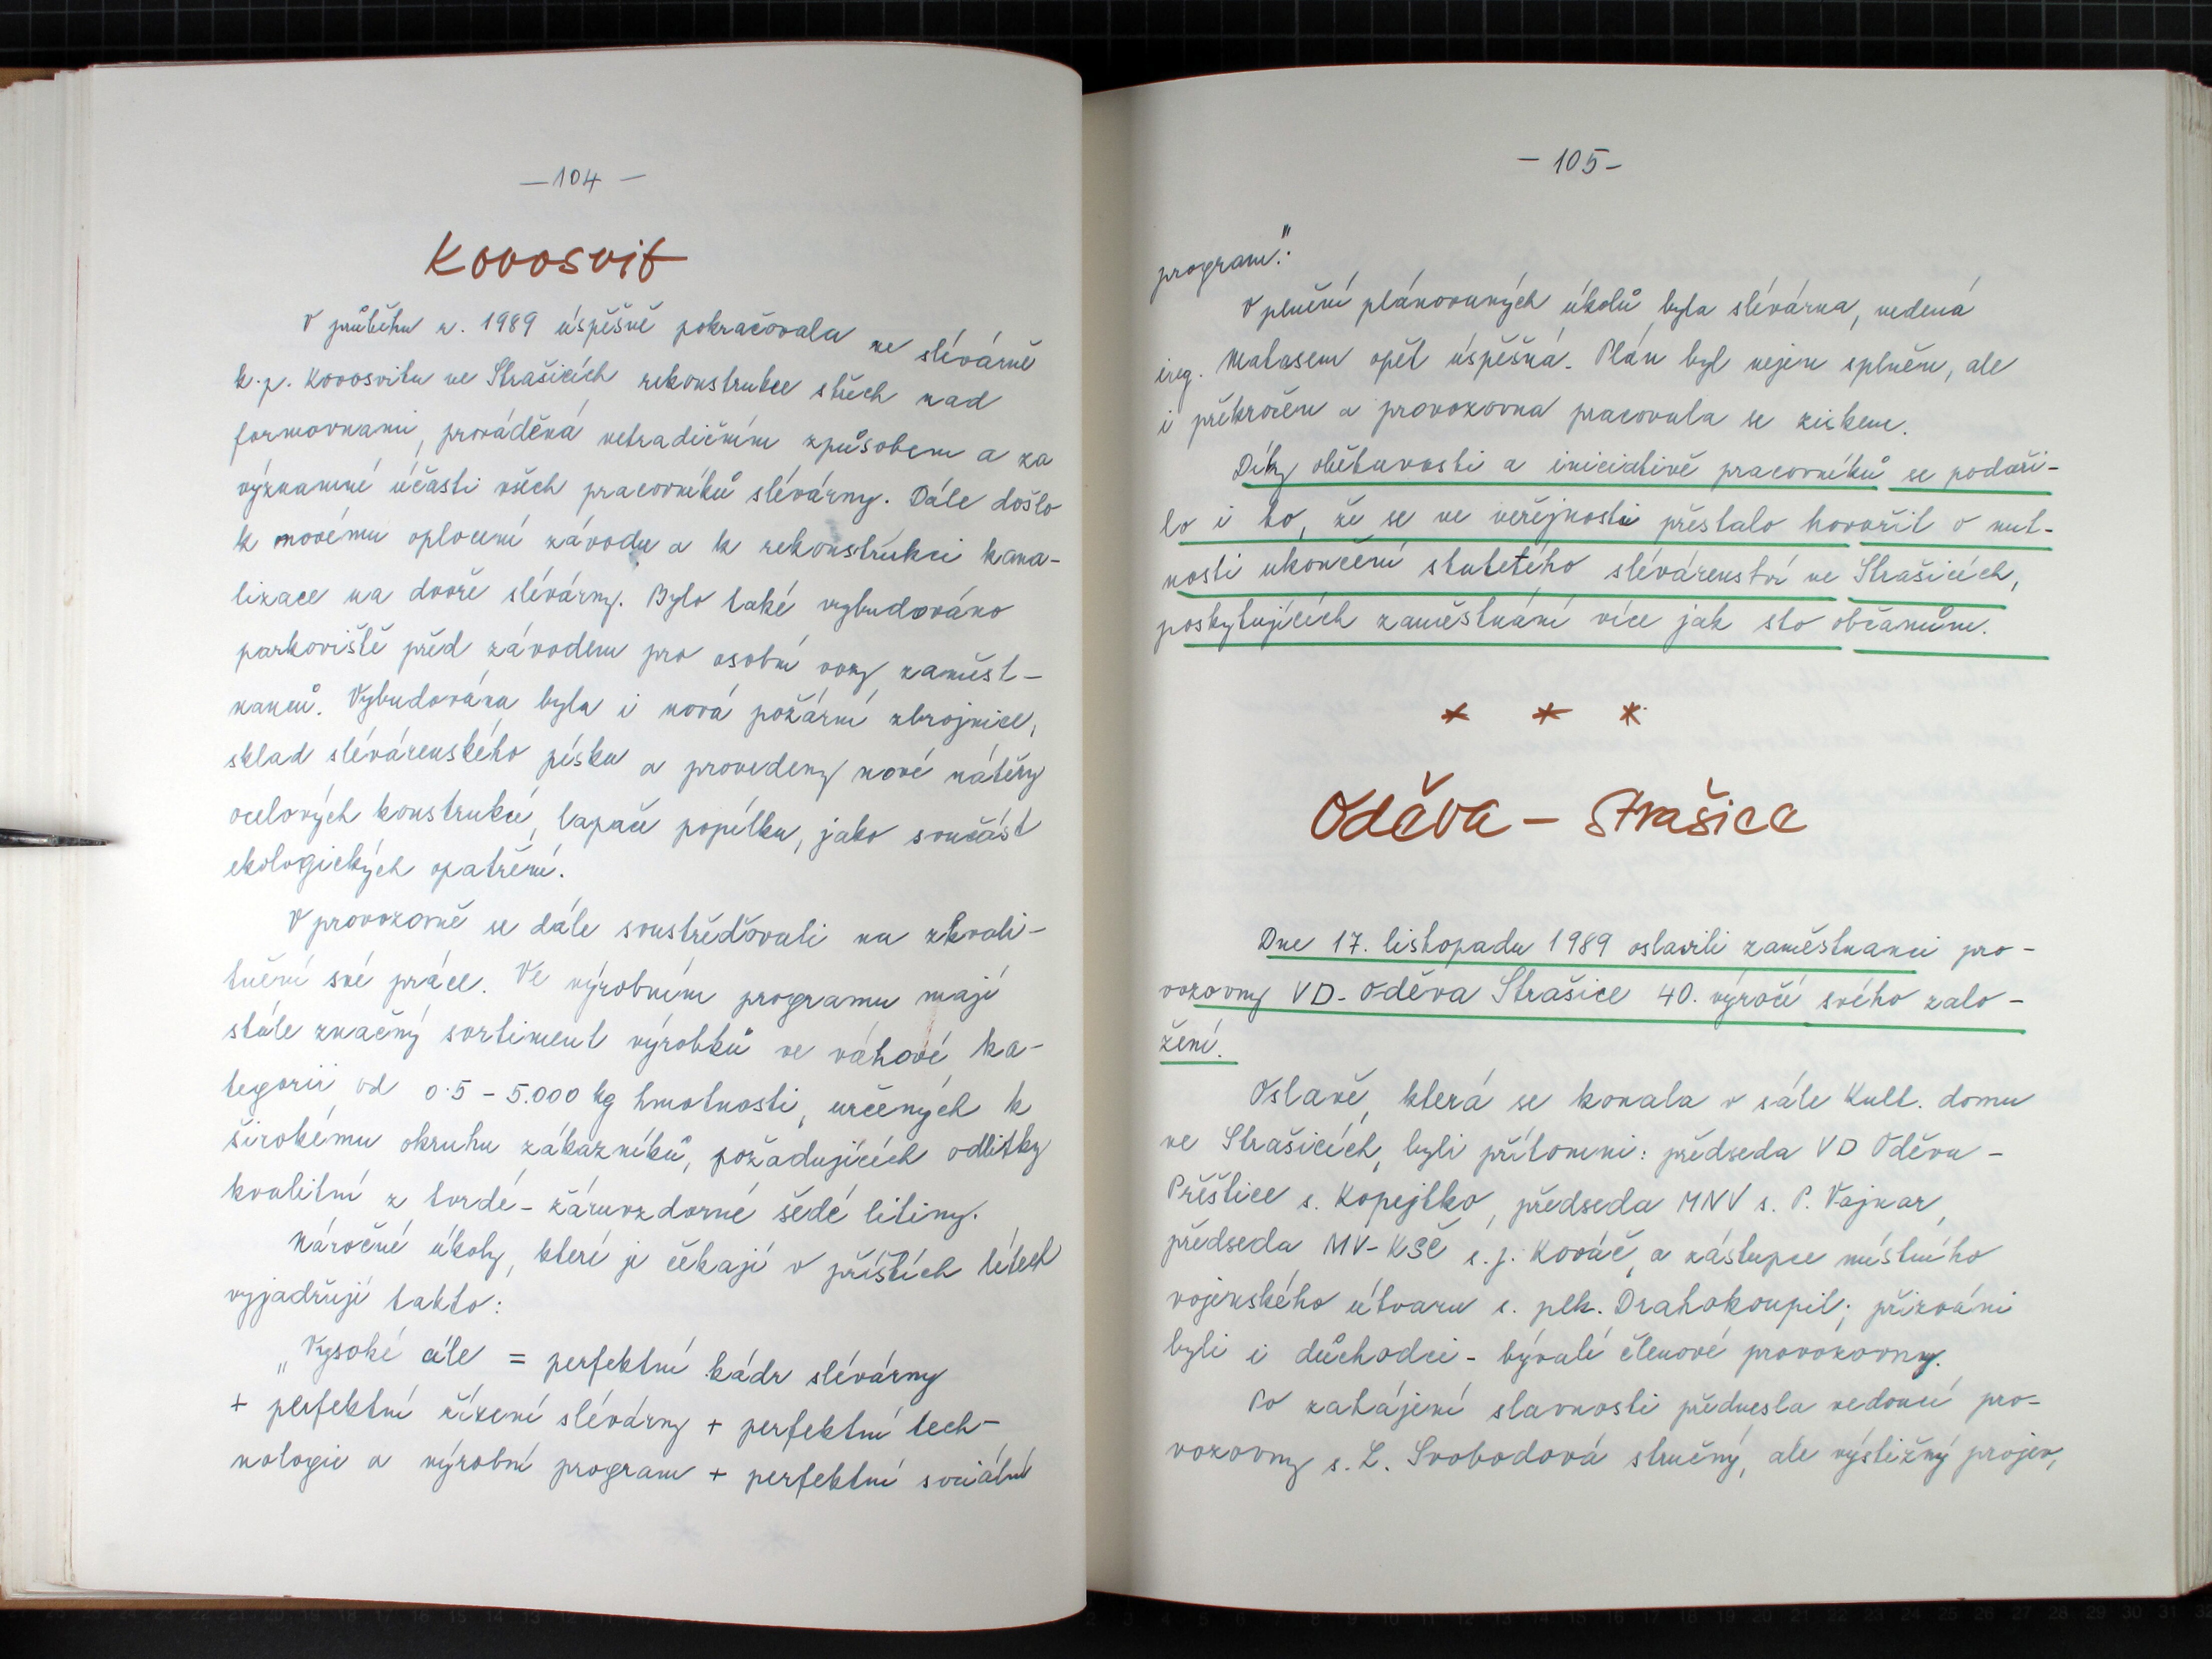 — 104 —
Kovosvit
V průběhu r. 1989 úspěšně pokračovala ve slévárně
k.p. Kovosvitu ve Strašicích rekonstrukce střech nad
formovnami, prováděná netradičním způsobem a za
významné účasti všech pracovníků slévárny. Dále došlo
k novému oplocení závodu a k rekonstrukci kana-
lizace na dvoře slévárny. Bylo také vybudováno
parkoviště před závodem pro osobní vozy zaměst-
nanců. Vybudována byla i nová požární zbrojnice,
sklad slévárenského písku a provedeny nové nátěry
ocelových konstrukcí, lapače popílku, jako součást
ekologických opatření.
V provozovně se dále soustřeďovali na zkvali-
tnění své práce. Ve výrobním programu mají
stále značný sortiment výrobků ve váhové ka-
tegorii od 0.5 – 5.000 kg hmotnosti, určených k
širokému okruhu zákazníků, požadujících odlitky
kvalitní z tvrdé - žáruvzdorné šedé litiny.
Náročné úkoly, které je čekají v příštích létech
vyjadřují takto:
„Vysoké cíle = perfektní kádr slévárny
+ perfektní řízení slévárny + perfektní tech-
nologie a výrobní program + perfektní sociální
— 105 —
program".
V plnění plánovaných úkolů byla slévárna, vedená
ing. Matasem opět úspěšná. Plán byl nejen splněn, ale
i překročen a provozovna pracovala se ziskem.
Díky obětavosti a iniciativě pracovníků se podaři-
lo i to, že se ve veřejnosti přestalo hovořit o nut-
nosti ukončení stoletého slévárenství ve Strašicích,
poskytujících zaměstnání více jak sto občanům.
* * *
Oděva – Strašice
Dne 17. listopadu 1989 oslavili zaměstnanci pro-
vozovny VD - Oděva Strašice 40. výročí svého zalo-
žení.
Oslavě, která se konala v sále Kult. domu
ve Strašicích, byli přítomni: předseda VD Oděva -
Přeštice s. Kopejtko, předseda MNV s. P. Vajnar,
předseda MV-KSČ s. J. Kováč, a zástupce místního
vojenského útvaru s. plk. Drahokoupil; přizváni
byli i důchodci - bývalí členové provozovny.
Po zahájení slavnosti přednesla vedoucí pro-
vozovny s. L. Svobodová stručný, ale výstižný projev,